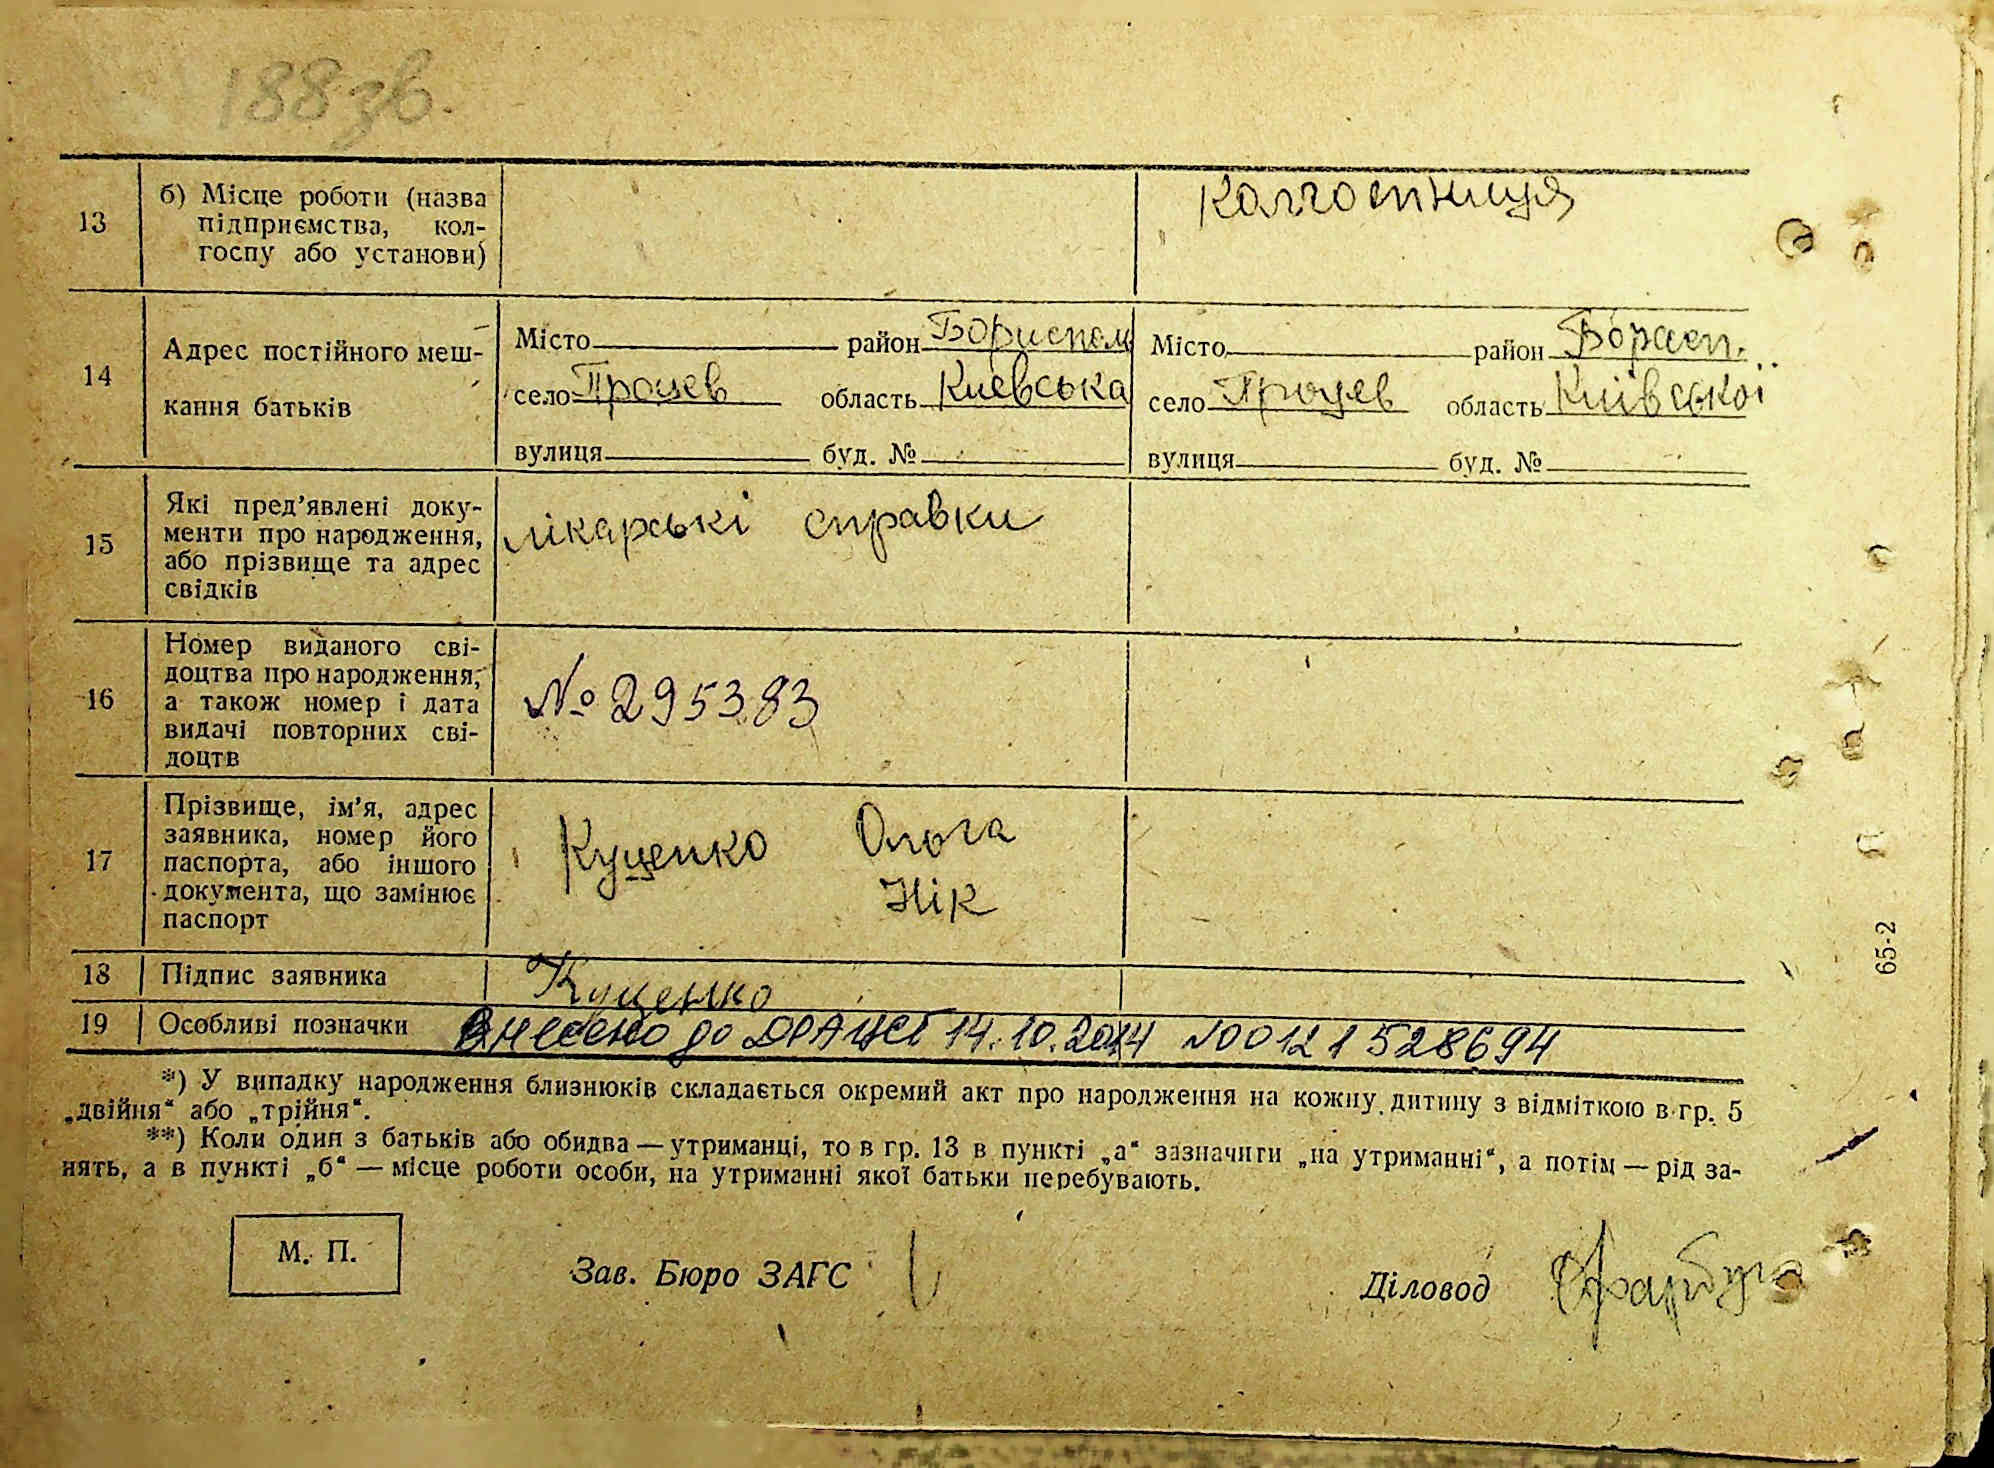 188 зв.
13 б) Місце роботи (назва підприємства, кол-
госпу або установи) Колгостниця
14 Адрес постійного меш-
кання батьків
Місто район Бориспол Місто район Борисп.
село Процев область Киевська село Процев область Київської
вулиця буд. № вулиця буд. №
15 Які пред'явлені доку-
менти про народження,
або прізвище та адрес
свідків
лікарські справки
16 Номер виданого сві-
доцтва про народження,
а також номер і дата
видачі повторних сві-
доцтв
№ 295383
17 Прізвище, ім'я, адрес
заявника, номер його
паспорта, або іншого
документа, що замінює
паспорт
Куценко Ольга
Нік
18 Підпис заявника Куценко
19 Особливі позначки Внесено до ДРАЦСГ 14.10.2014 №00121528694
*) У випадку народження близнюків складається окремий акт про народження на кожну дитину з відміткою в гр. 5
„двійня“ або „трійня“.
**) Коли один з батьків або обидва — утриманці, то в гр. 13 в пункті „а“ зазначити „на утриманні“, а потім — рід за-
нять, а в пункті „б“ — місце роботи особи, на утриманні якої батьки перебувають.
М. П.
Зав. Бюро ЗАГС
Діловод
65-2